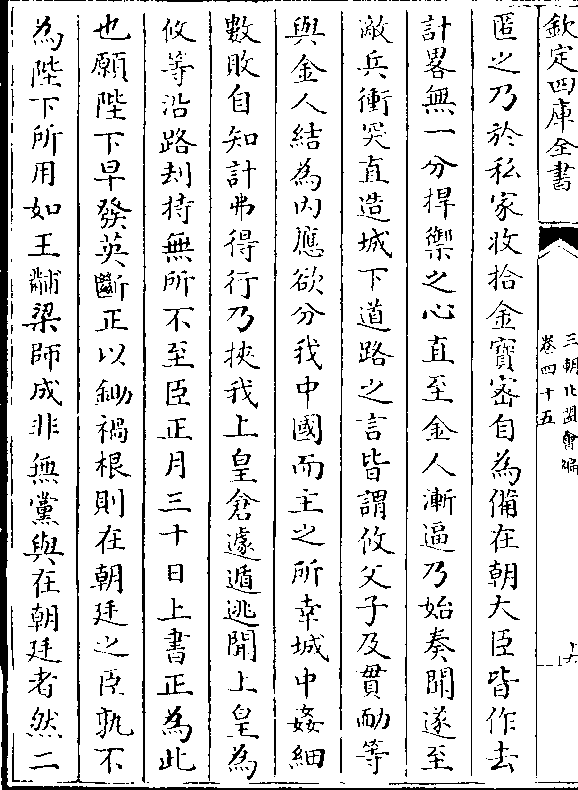 欽定四庫全書
三朝北盟會編
卷四十五
匿之乃於私家收拾金寳密自為備在朝大臣皆作去
計畧無一分捍禦之心直至金人漸逼乃始奏聞遂至
敵兵衝突直造城下道路之言皆謂攸父子及貫勔等
與金人結為内應欲分我中國而主之所幸城中姦細
數敗自知計弗得行乃挾我上皇倉遽遁逃聞上皇為
攸等沿路刦持無所不至臣正月三十日上書正為此
也願陛下早發英斷正以鋤禍根則在朝廷之臣孰不
為陛下所用如王黼梁師成非無黨與在朝廷者然二